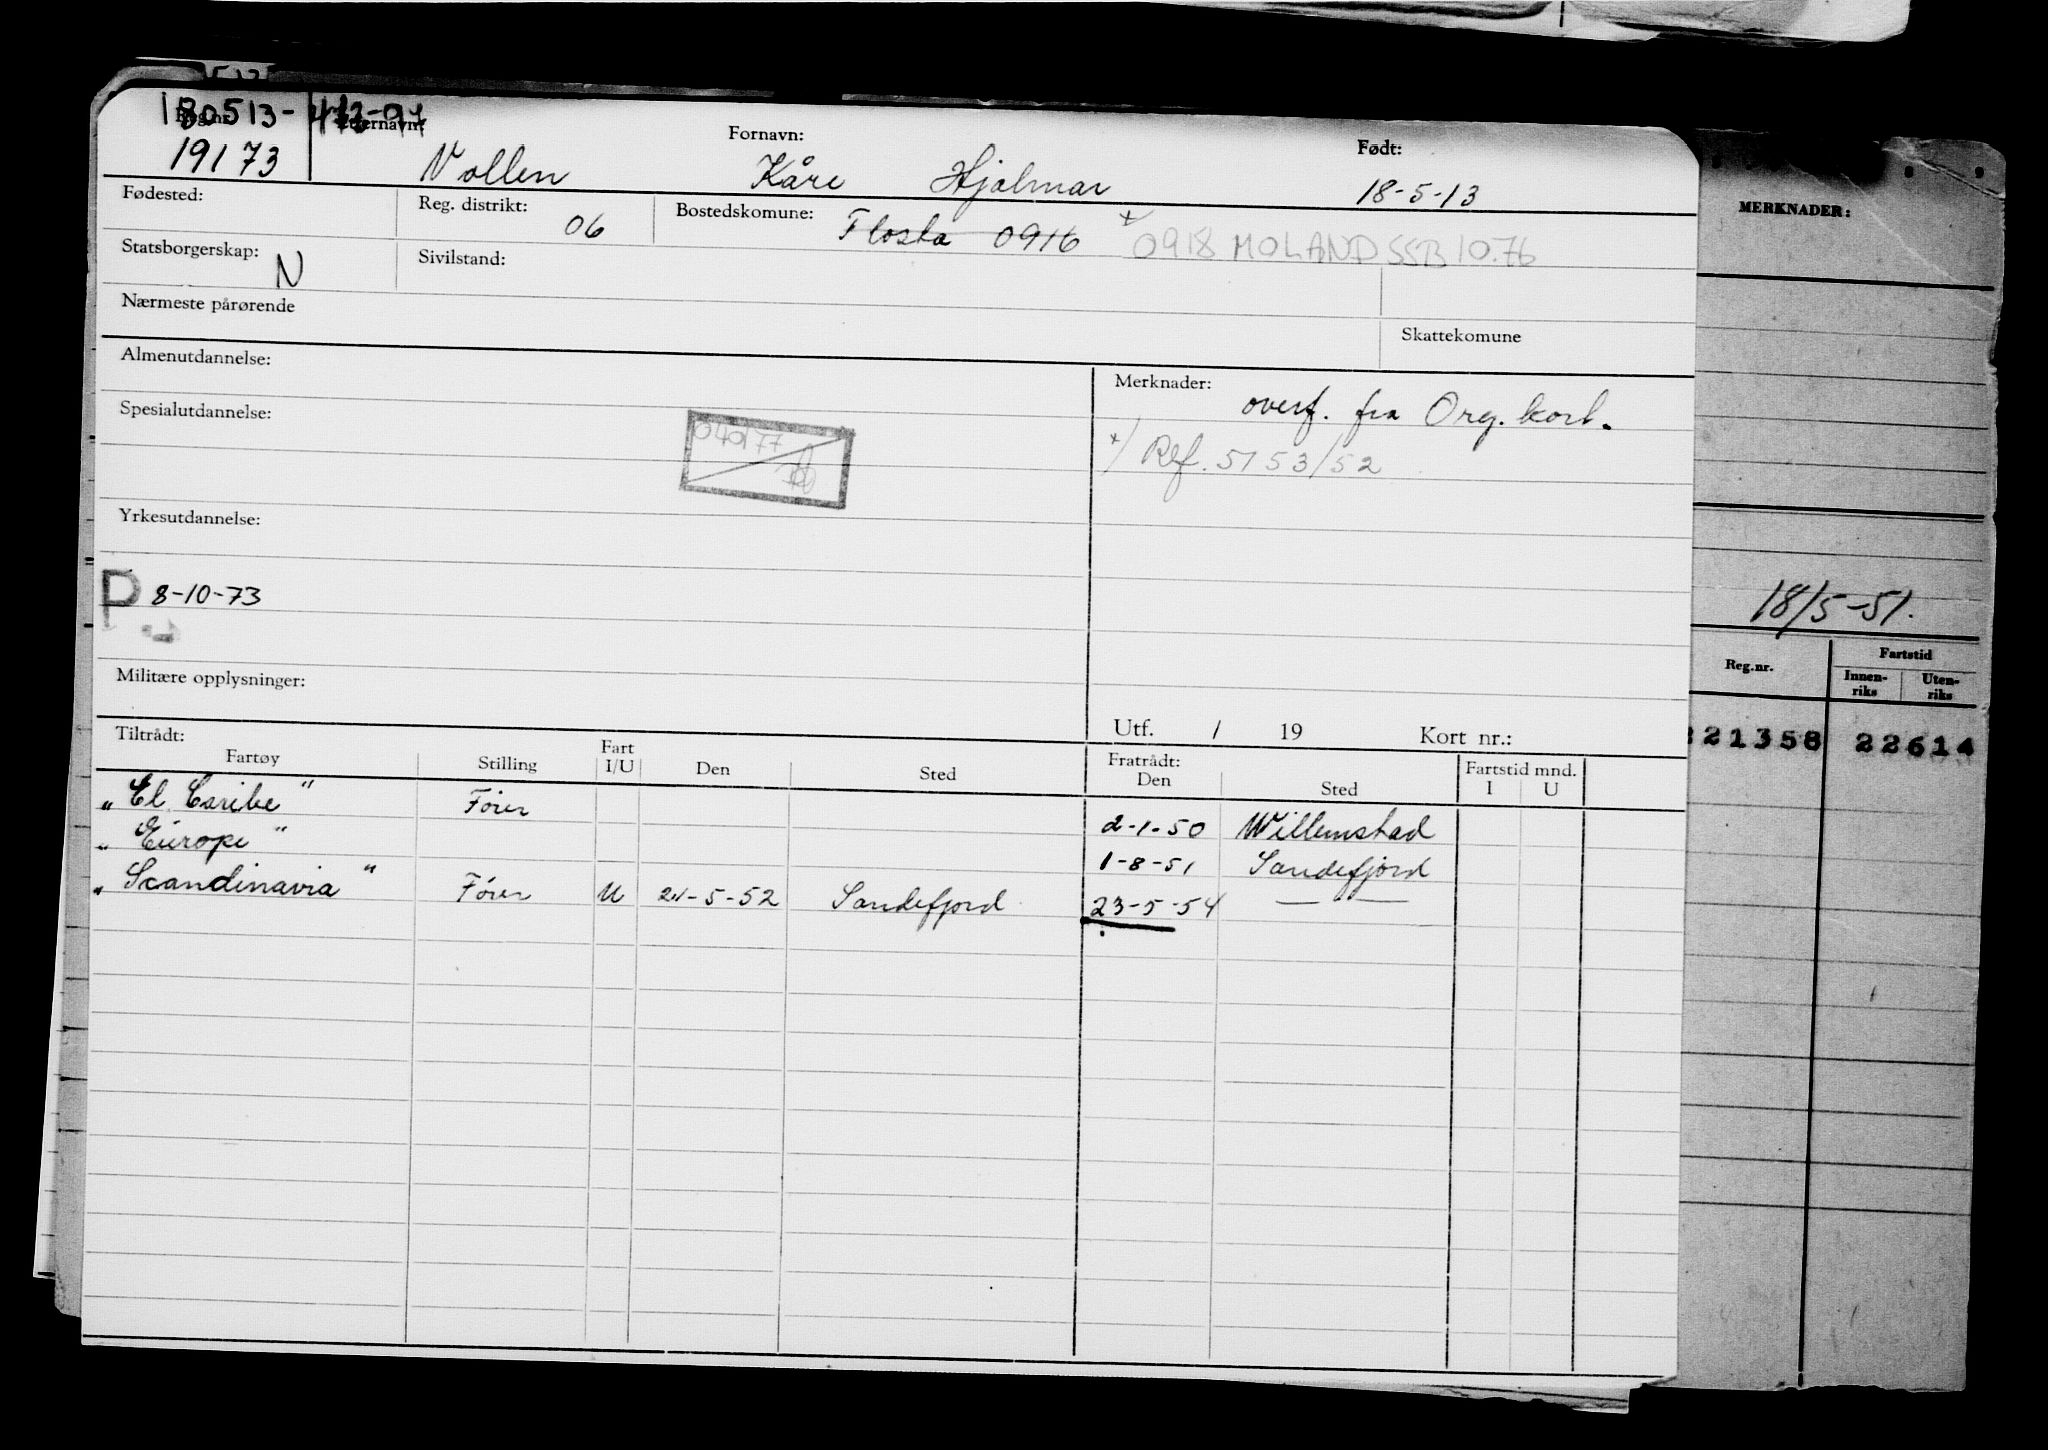 Reg.nr. Etternavn: Fornavn: Født:
19173 Vollen Kåre Hjalmar 18-5-13
Fødested: Reg. distrikt: 06 Bostedskomune: Flosta 0916 x 0918 MOLAND SSB 10.76
Statsborgerskap: N Sivilstand:
Nærmeste pårørende Skattekomune
Almenutdannelse: Merknader: overf. fra Org. kort.
Spesialutdannelse: x/ Ref. 5153/52
040177
Yrkesutdannelse:
P 8-10-73
Militære opplysninger:
Utf. / 19 Kort nr.:
Tiltrådt: Fratrådt: Fartstid mnd.
Fartøy Stilling Fart I/U Den Sted Den Sted I U
"El Caribe" Fører 2-1-50 Willemstad
"Europe" 1-8-51 Sandefjord
"Scandinavia" Fører U 21-5-52 Sandefjord 23-5-54 — " —
MERKNADER:
18/5-51.
Reg.nr. Fartstid
Innen-riks Uten-riks
21358 22614